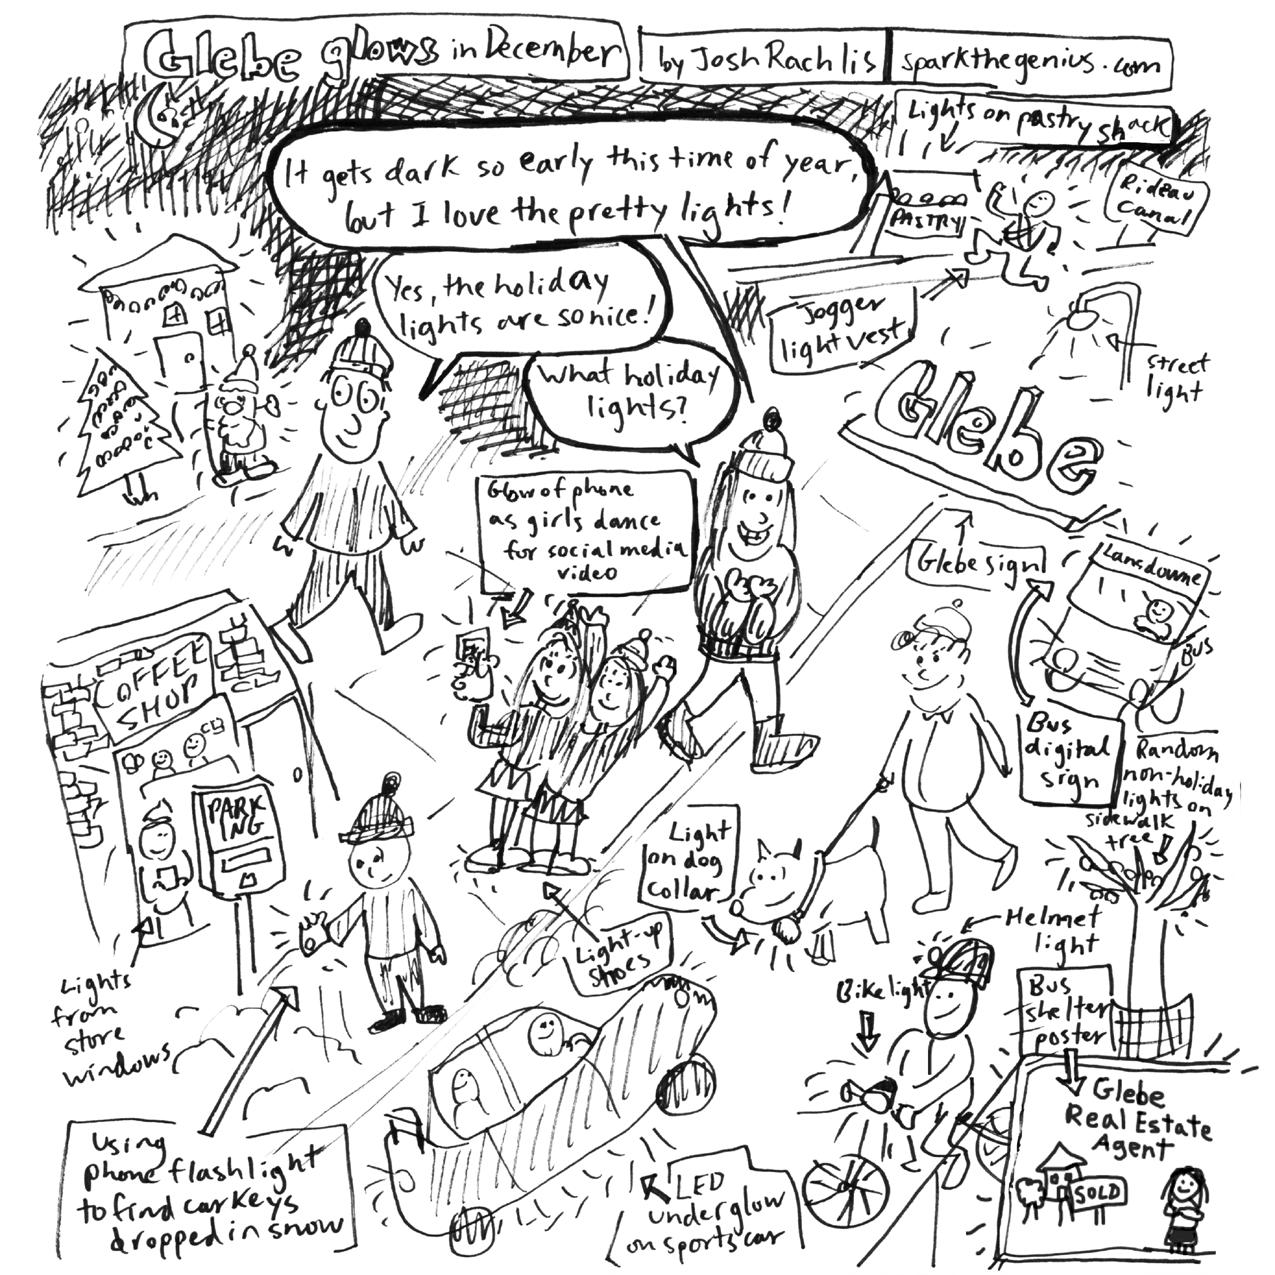 Glebe glows in December
by Josh Rachlis
sparkthegenius.com
Lights on pastry shack
It gets dark so early this time of year,
but I love the pretty lights!
PASTRY
Rideau
Canal
Yes, the holiday
lights are so nice!
Jogger
light vest
street
light
What holiday
lights?
Glebe
Glow of phone
as girls dance
for social media
video
Glebe sign
Lansdowne
Bus
COFFEE
SHOP
Bus
digital
sign
Random
non-holiday
lights on
sidewalk
tree
PARK
ING
Light
on dog
collar
Helmet
light
Light-up
shoes
Lights
from
store
windows
Bike light
Bus
shelter
poster
Glebe
Real Estate
Agent
SOLD
Using
phone flashlight
to find car keys
dropped in snow
LED
underglow
on sports car